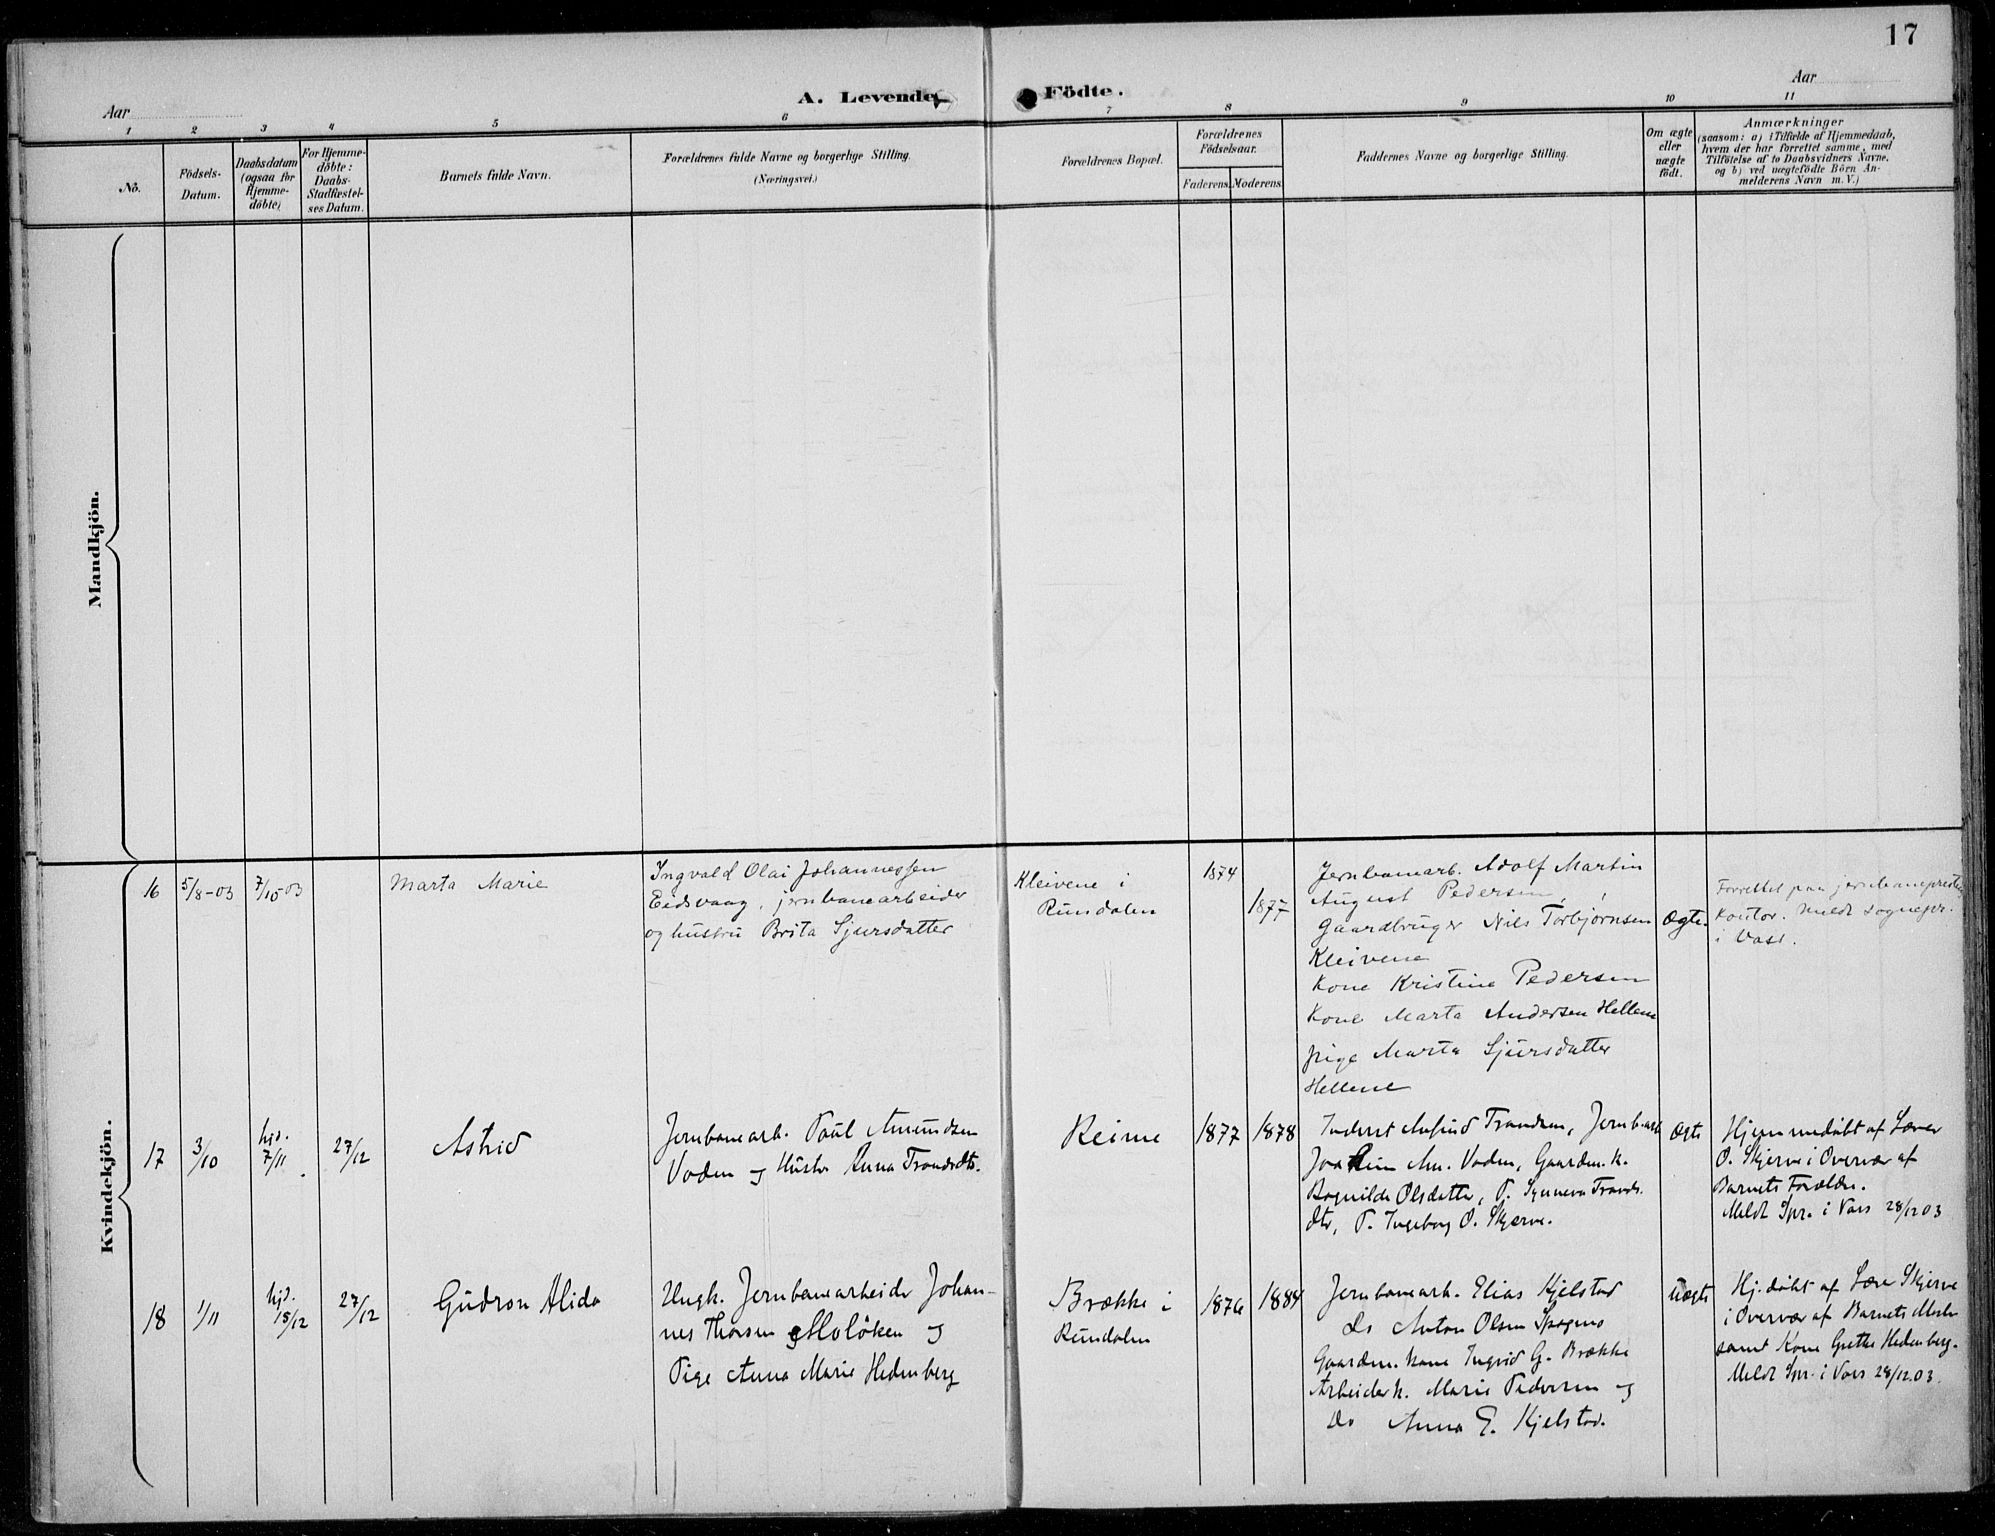 17
Aar
A. Levende
Födte.
Aar
1
2
3
4
5
6
7
8
9
10
11
No.
Födsels-
Datum.
Daabsdatum
(ogsaa for
Hjemme-
döbte)
For Hjemme-
döbte:
Daabs-
Stadfæstel-
ses Datum.
Barnets fulde Navn.
Forældrenes fulde Navne og borgerlige Stilling.
(Næringsvei.)
Forældrenes Bopæl.
Forældrenes
Födselsaar.
Faderens.
Moderens.
Faddernes Navne og borgerlige Stilling.
Om ægte
eller
uægte
födt.
Anmærkninger
(saasom: a) i Tilfælde af Hjemmedaab,
hvem der har forrettet samme, med
Tilföielse af to Daabsvidners Navne,
og b) ved uægtefödte Börn An-
melderens Navn m. V.)
Mandkjön.
Kvindekjön.
16
5/8-03
7/10-03
Marta Marie
Ingvald Olai Johannessen
Eidsvaag, jernbanearbeider
og hustru Brita Sjursdatter
Kleivene i
Rundalen
1874
1877
Jernbanearb. Adolf Martin
August Pedersen,
Gaardbruger Nils Torbjørnsen
Kleivene
Kone Kristine Pedersen
Kone Marta Andersen Hellene
pige Marta Sjursdatter
Hellene
Ægte.
Forrettet paa jernbaneprestens
Kontor. Meldt sognepr.
i Voss.
17
3/10
hjd.
7/11
27/12
Astrid
Jernbanearb. Paul Amundsen
Voden og Hustr. Anna Trondsdtr.
Reime
1877
1878
Inderst Trondsen, Jernb.arb
Joakim Am. Voden, Gaardm. k.
Bagnilde Olsdatter, P. Synneva Tronds.
dtr, P. Ingeborg O. Skjerve.
Ægte
Hjemmedøbt af Lærer
O. Skjerve i Overvær af
Barnets Forældre.
Meldt Spr. i Vors 28/12 03
18
1/11
hjd.
15/12
27/12
Gudron Alida
Ungk. Jernbanearbeider Johan-
nes Thorsen Moløkken og
Pige Anna Marie Hedenberg
Brække i
Rundalen
1876
1884
Jernbanearb. Elias Kjelstad
Do Anton Olsen
Gaardm. kone Ingrid G. Brække
Arbeider k. Marie Pedersen og
Do Anna E. Kjelstad.
Uægte
Hj. døbt af Lærer Skjerve
i Overvær af Barnets Moder
samt Kone Grethe Hedenberg.
Meldt Spr. i Vors 28/12.03.